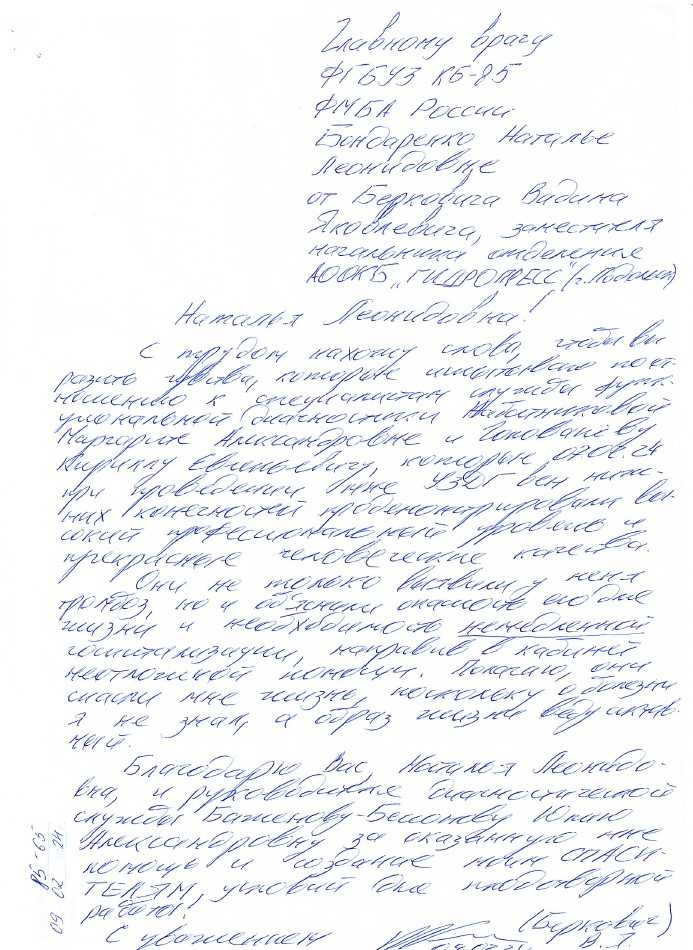 Главному врачу
ФГБУЗ КБ-85
ФМБА России
Бондаренко Наталье
Леонидовне
от Берковича Вадима
Яковлевича, заместителя
начальника отделения
АО ОКБ „ГИДРОПРЕСС" (г. Подольск)
Наталья Леонидовна!
С трудом нахожу слова, чтобы вы-
разить чувства, которые испытываю по от-
ношению к специалистам службы функ-
циональной диагностики
Маргарите Александровне и
Кириллу Евгеньевичу, которые 07.02.24
при проведении мне УЗДГ вен ниж-
них конечностей продемонстрировали вы-
сокий профессиональный уровень и
прекрасные человеческие качества.
Они не только выявили у меня
тромбоз, но и объяснили опасность его для
жизни и необходимость немедленной
госпитализации, направив в кабинет
неотложной помощи. Полагаю, они
спасли мне жизнь, поскольку о болезни
я не знал, а образ жизни веду актив-
ный.
Благодарю Вас, Наталья Леонидо-
вна, и руководителя диагностической
службы Баженову- Юлию
Александровну за оказанную мне
помощь и создание моим СПАСИ-
ТЕЛЯМ, условий для плодотворной
работы!
С уважением
(Беркович)
85-65
09 02 24